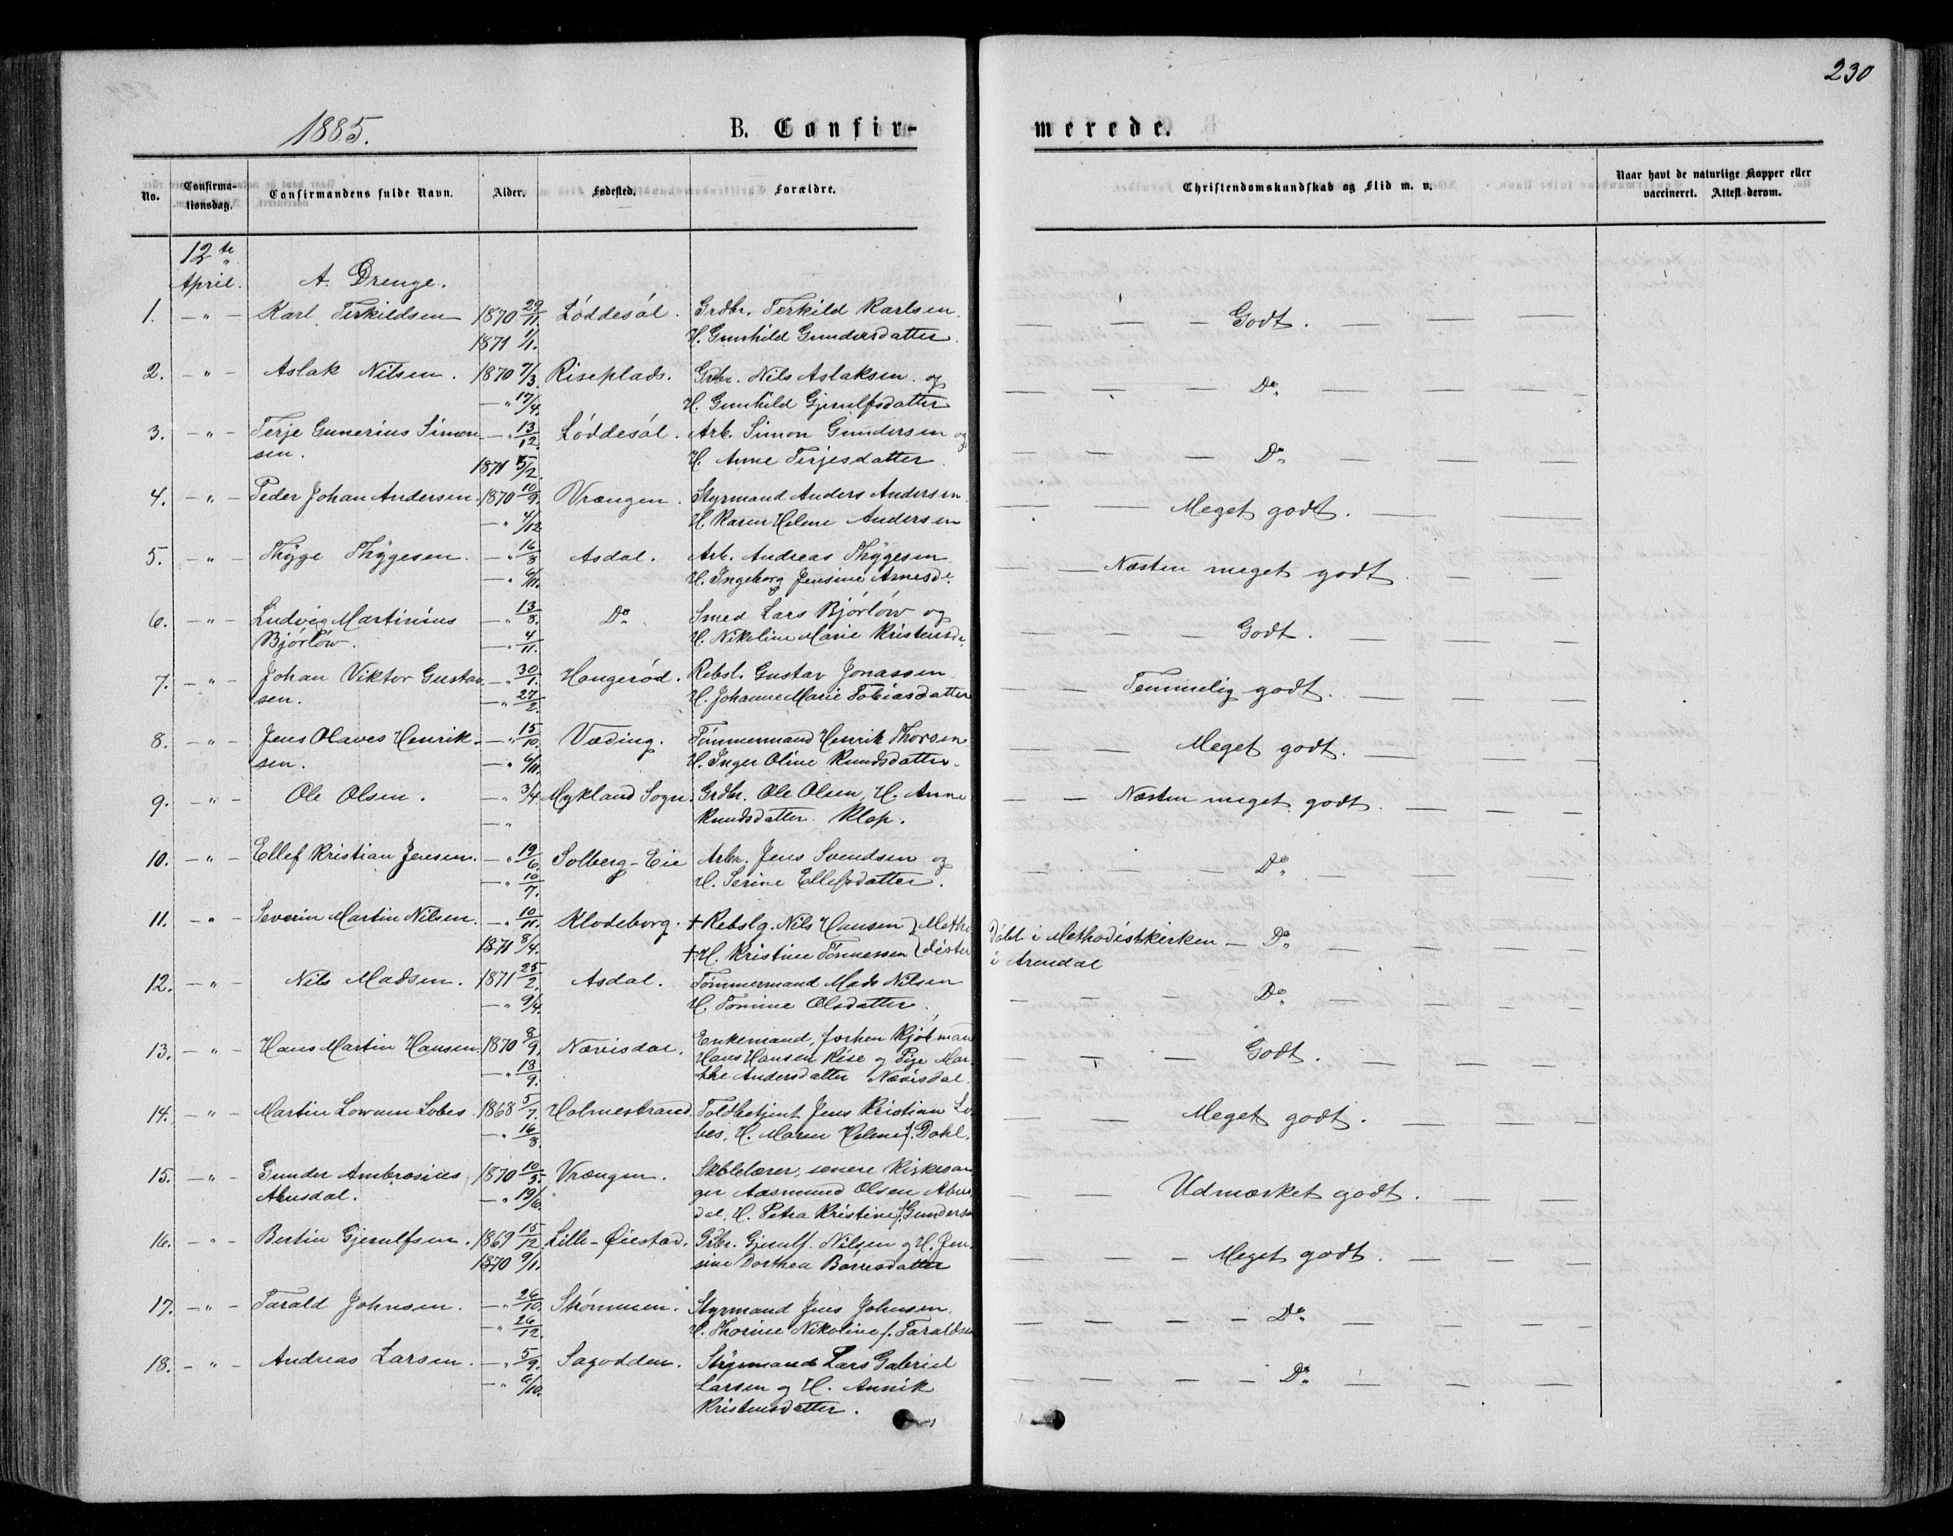 230
1885.
B. Confir-
merede.
No.
Confirma-
tionsdag.
Confirmandens fulde Navn.
Alder.
Fødested.
Forældre.
Christendomskundskab og Flid m. v.
Naar havt de naturlige Kopper eller
vaccineret. Attest derom.
12te
April.
A. Drenge.
1. -"- Karl Terkildsen 1870 29/11. Løddesøl. Grdbr. Terkild Karlsen — — — Godt. — — —
1871 1/1. H. Gunhild Gundersdatter.
2. -"- Aslak Nilsen. 1870 7/3. Riseplads. Grbr. Nils Aslaksen og — — — Do — — —
-"- 17/4. H. Gunhild Gjerulfsdatter
3. -"- Terje Gunerius Simon -"- 13/12. Løddesøl. Arb. Simon Gundersen og — — — Do — — —
sen. 1871 5/2. H. Anne Terjesdatter.
4. -"- Peder Johan Andersen 1870 10/9. Vrængen. Styrmand Anders Andersen — — Meget godt. — — —
-"- 4/12. H. Karen Helene Andersen
5. -"- Thyge Thygesen. -"- 16/8 Asdal. Arb. Andreas Thygesen — — Næsten meget godt. — — —
-"- 6/11. H. Ingeborg Jensine Arnesdr.
6. -"- Ludvig Martinius -"- 13/8. Do Smed Lars Bjørløw og — — — Godt. — — —
Bjørløw. -"- 4/11. H. Nikoline Marie Kristensdr.
7. -"- Johan Viktor Gustav -"- 30/1. Haugerød. Rebsl. Gustav Jonassen — — Temmelig godt. — — —
sen. -"- 27/2. H. Johanne Marie Tobiasdatter
8. -"- Jens Olaves Henrik- -"- 15/10. Væding. Tømmermand Henrik Thorsen — — Meget godt. — — —
sen. -"- 6/11. H. Inger Oline Knudsdatter.
9. -"- Ole Olsen. -"- 3/4 Mykland Sogn. Grdbr. Ole Olsen, H. Anne — — Næsten meget godt. — — —
-"- Knudsdatter Klep.
10. -"- Ellef Kristian Jensen. -"- 19/6. Solberg-Eie Arbr. Jens Svendsen og — — — Do — — —
-"- 10/7. H. Serine Ellefsdatter.
11. " - Severin Martin Nilsen. -"- 10/11. Klodeborg. + Rebslg. Nils Hansen } Metho Døbt i Methodistkirken — Do — — —
1871 8/4. + H. Kristine Tønnessen } dister i Arendal
12. -"- Nils Madsen. 1871 25/2. Asdal. Tømmermand Mads Nilsen — — — Do — — —
-"- 9/4. H. Tomine Olsdatter.
13. -"- Hans Martin Hansen 1870 8/9. Nævisdal. Enkemand, forhen Kjøbmand — — — Godt. — — —
-"- 18/9. Hans Hansen Rise og Pige Mar-
the Andersdatter Nævisdal.
14. -"- Martin Lowum Lobes 1868 5/7. Holmestrand. Toldbetjent Jens Kristian Lo- — — Meget godt. — — —
-"- 16/8. bes, H. Maren Helene f. Dahl.
15. -"- Gunder Ambrosius 1870 10/5. Vrængen. Skolelærer, senere Kirkesan — — Udmærket godt. — — —
Alvsdal. -"- 19/6. ger Aasmund Olsen Alvs-
dal, H. Petra Kristine f. Gundersen
16. -"- Bertin Gjerulfsen. 1869 15/12. Lille-Øiestad. Grbr. Gjerulf Nilsen og H. Jen- — — — Meget godt. — — —
1870 9/1. sine Dorthea Børresdatter
17. -"- Tarald Johnsen. -"- 26/10. Strømmen. Styrmand Jens Johnsen, — — — Do — — —
-"- 26/12. H. Thorine Nikoline f. Taraldsen
18. -"- Andreas Larsen. -"- 5/9. Sagodden. Styrmand Lars Gabriel — — — Do — — —
-"- 6/10. Larsen og H. Annik
Kristensdatter.